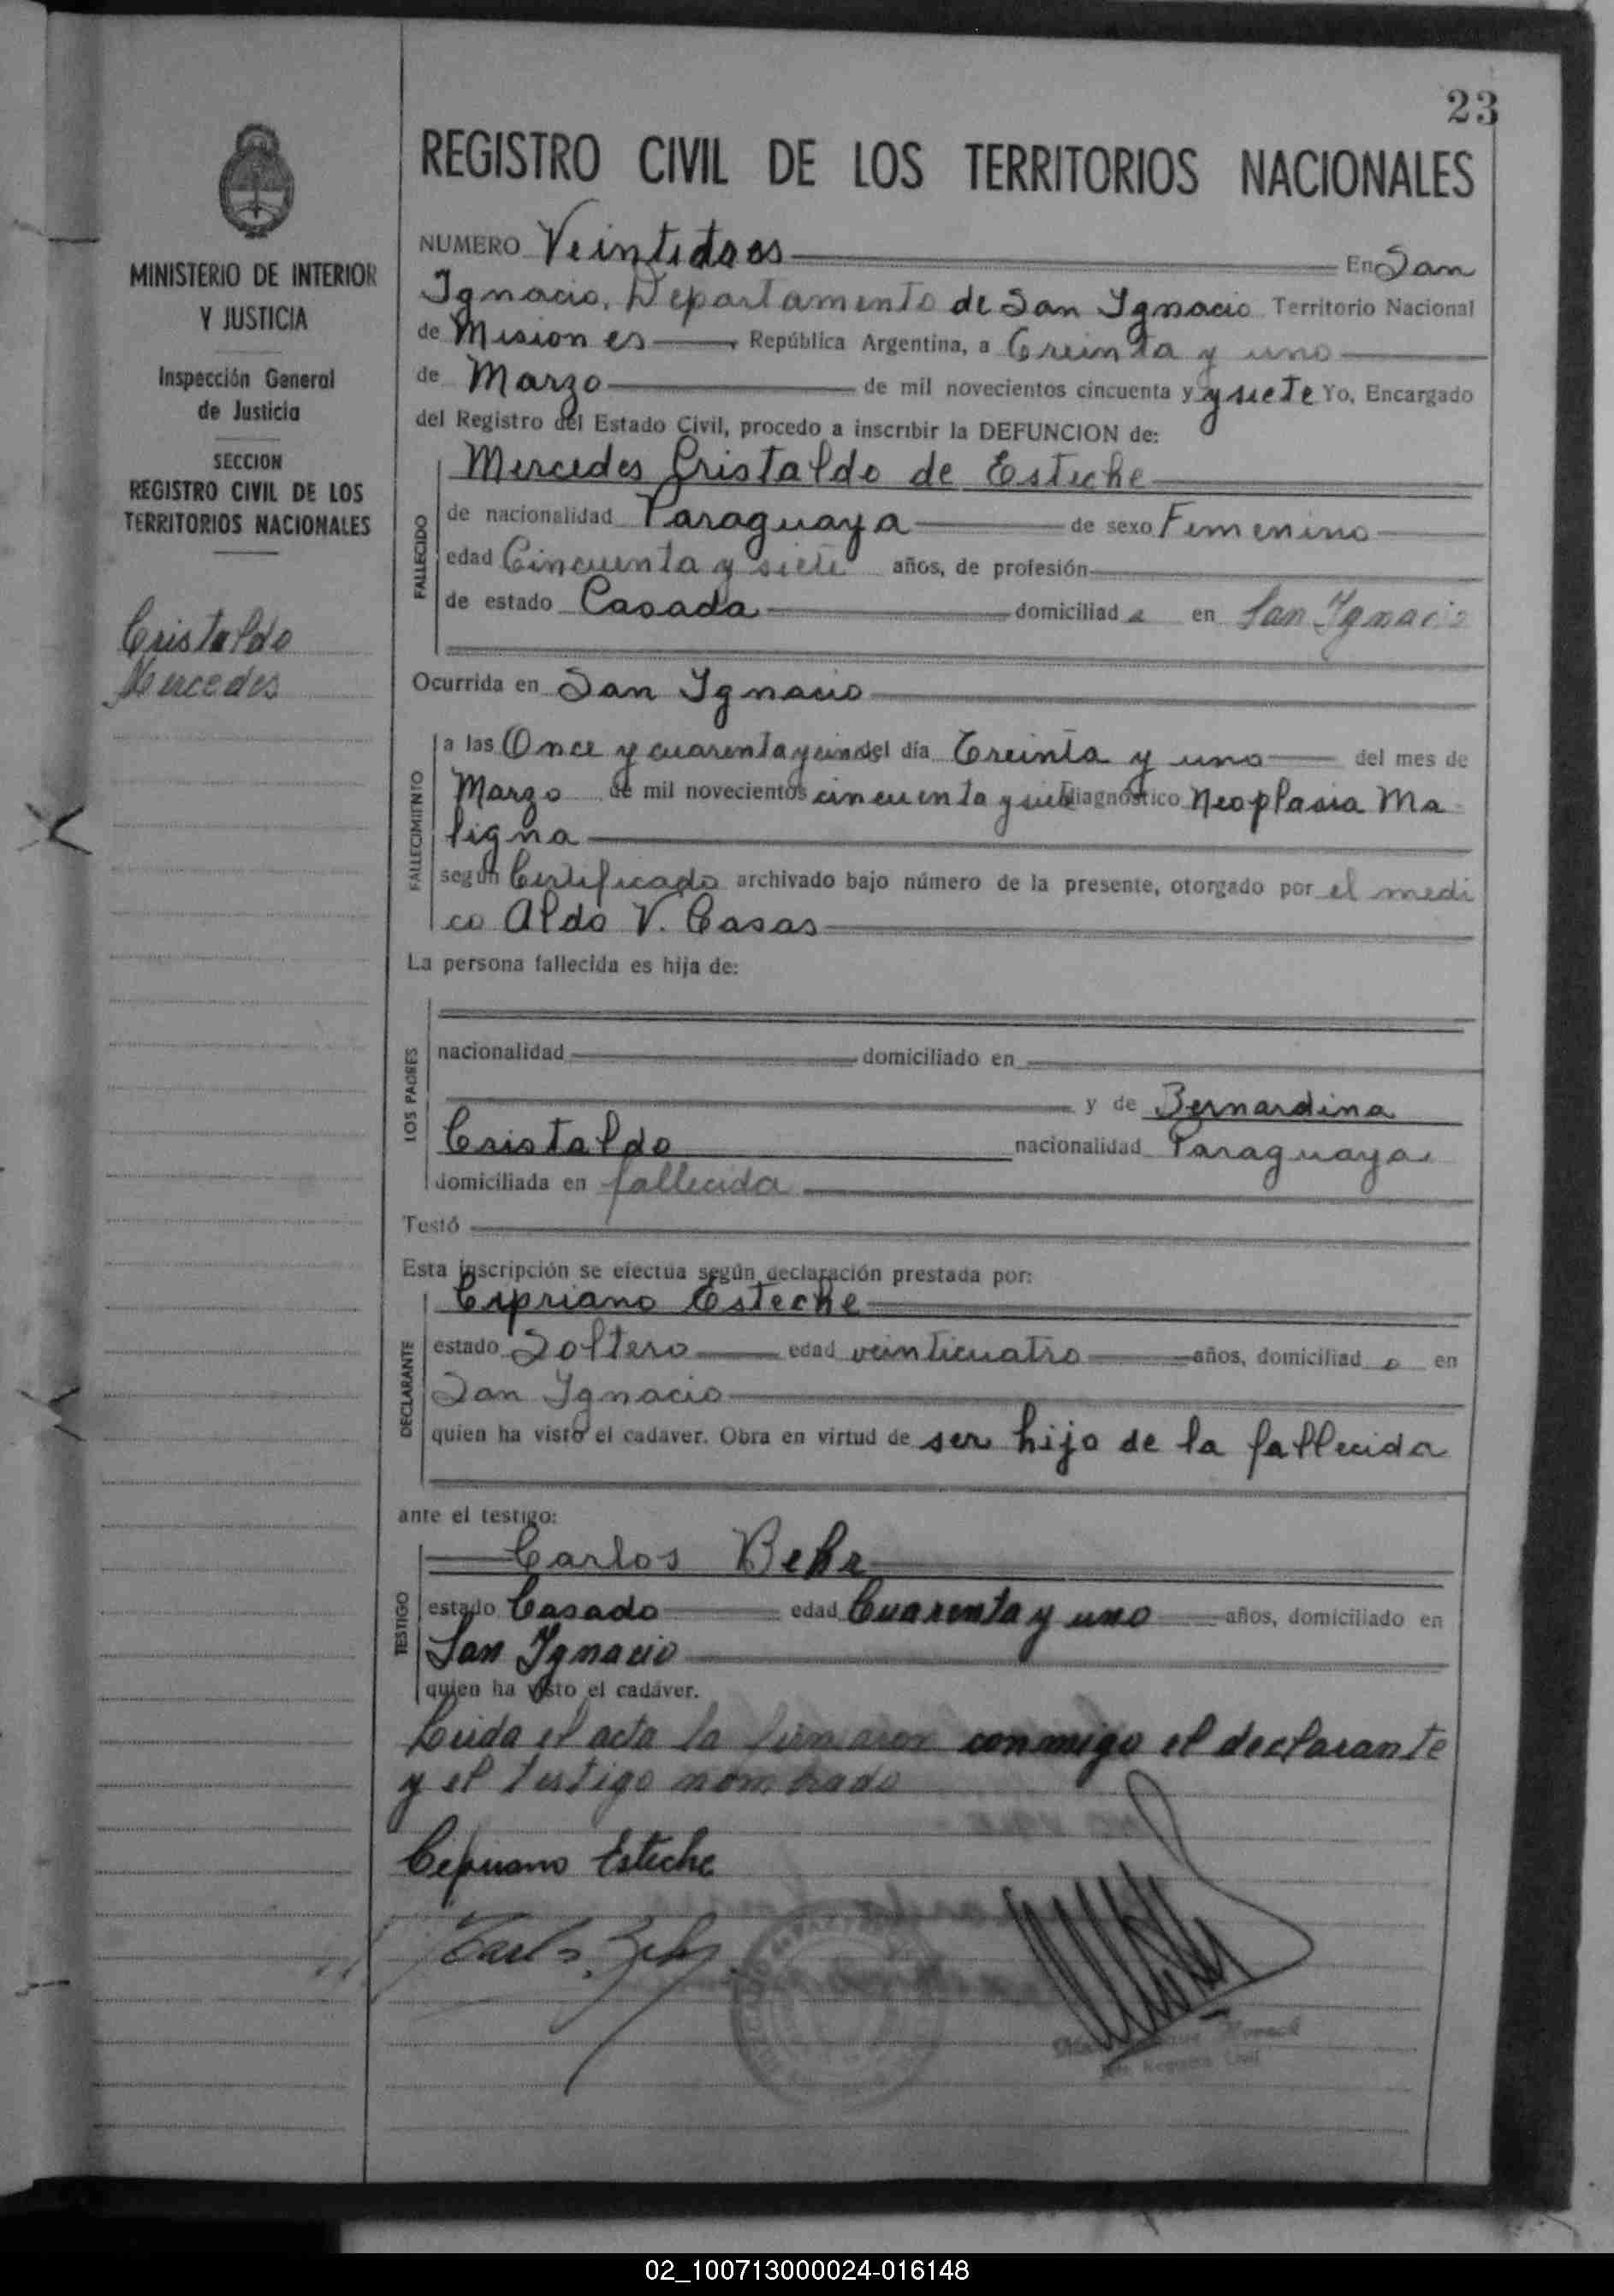 23
REGISTRO CIVIL DE LOS TERRITORIOS NACIONALES
MINISTERIO DE INTERIOR
Y JUSTICIA
Inspección General
de Justicia
SECCION
REGISTRO CIVIL DE LOS
TERRITORIOS NACIONALES
Cristaldo
Mercedes
NUMERO Veintidoos En San
Ignacio, Departamento de San Ygnacio Territorio Nacional
de Misiones República Argentina, a Treinta y uno
de Marzo de mil novecientos cincuenta y y siete Yo, Encargado
del Registro del Estado Civil, procedo a inscribir la DEFUNCION de:
FALLECIDO
Mercedes Cristaldo de Esteche
de nacionalidad Paraguaya de sexo Femenino
edad Cincuenta y siete años, de profesión
de estado Casada domiciliad a en San Ygnacio
Ocurrida en San Ygnacio
FALLECIMIENTO
a las Once y cuarenta y del día Treinta y uno del mes de
Marzo de mil novecientos cincuenta y siete Diagnóstico Neoplasia Ma
ligna
según Certificado archivado bajo número de la presente, otorgado por el medi
co Aldo V. Casas
La persona fallecida es hija de:
LOS PADRES
nacionalidad domiciliado en
y de Bernardina
Cristaldo nacionalidad Paraguaya
domiciliada en fallecida
Testó
Esta inscripción se efectúa según declaración prestada por:
DECLARANTE
Cipriano Esteche
estado Soltero edad veinticuatro años, domiciliad o en
San Ygnacio
quien ha visto el cadaver. Obra en virtud de ser hijo de la fallecida
ante el testigo:
TESTIGO
Carlos Behr
estado Casado edad Cuarenta y uno años, domiciliado en
San Ygnacio
quien ha visto el cadáver.
Leida el acta la firmaron conmigo el declarante
y el testigo nombrado
Cipriano Esteche
02_100713000024-016148